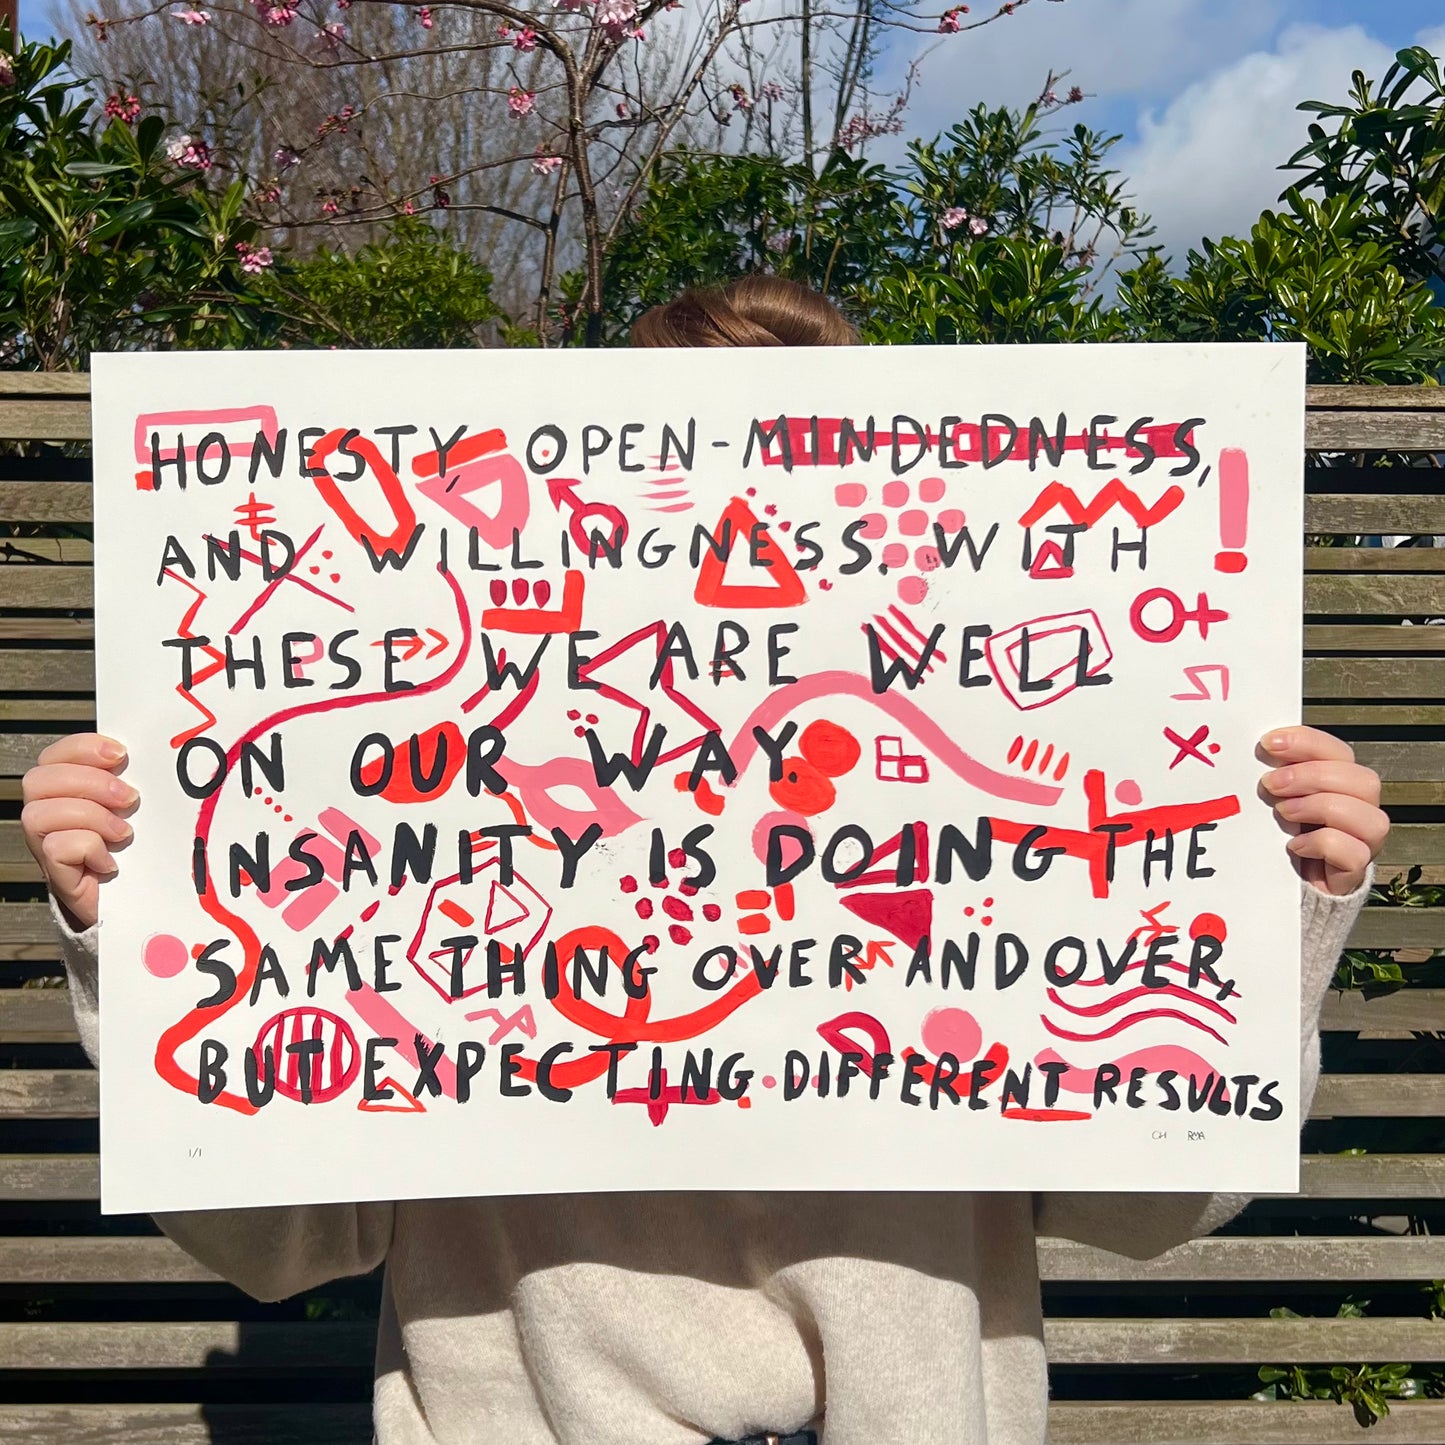 HONESTY, OPEN-MINDEDNESS,
AND WILLINGNESS. WITH
THESE WE ARE WELL
ON OUR WAY.
INSANITY IS DOING THE
SAME THING OVER AND OVER,
BUT EXPECTING DIFFERENT RESULTS
1/1
CH RMA